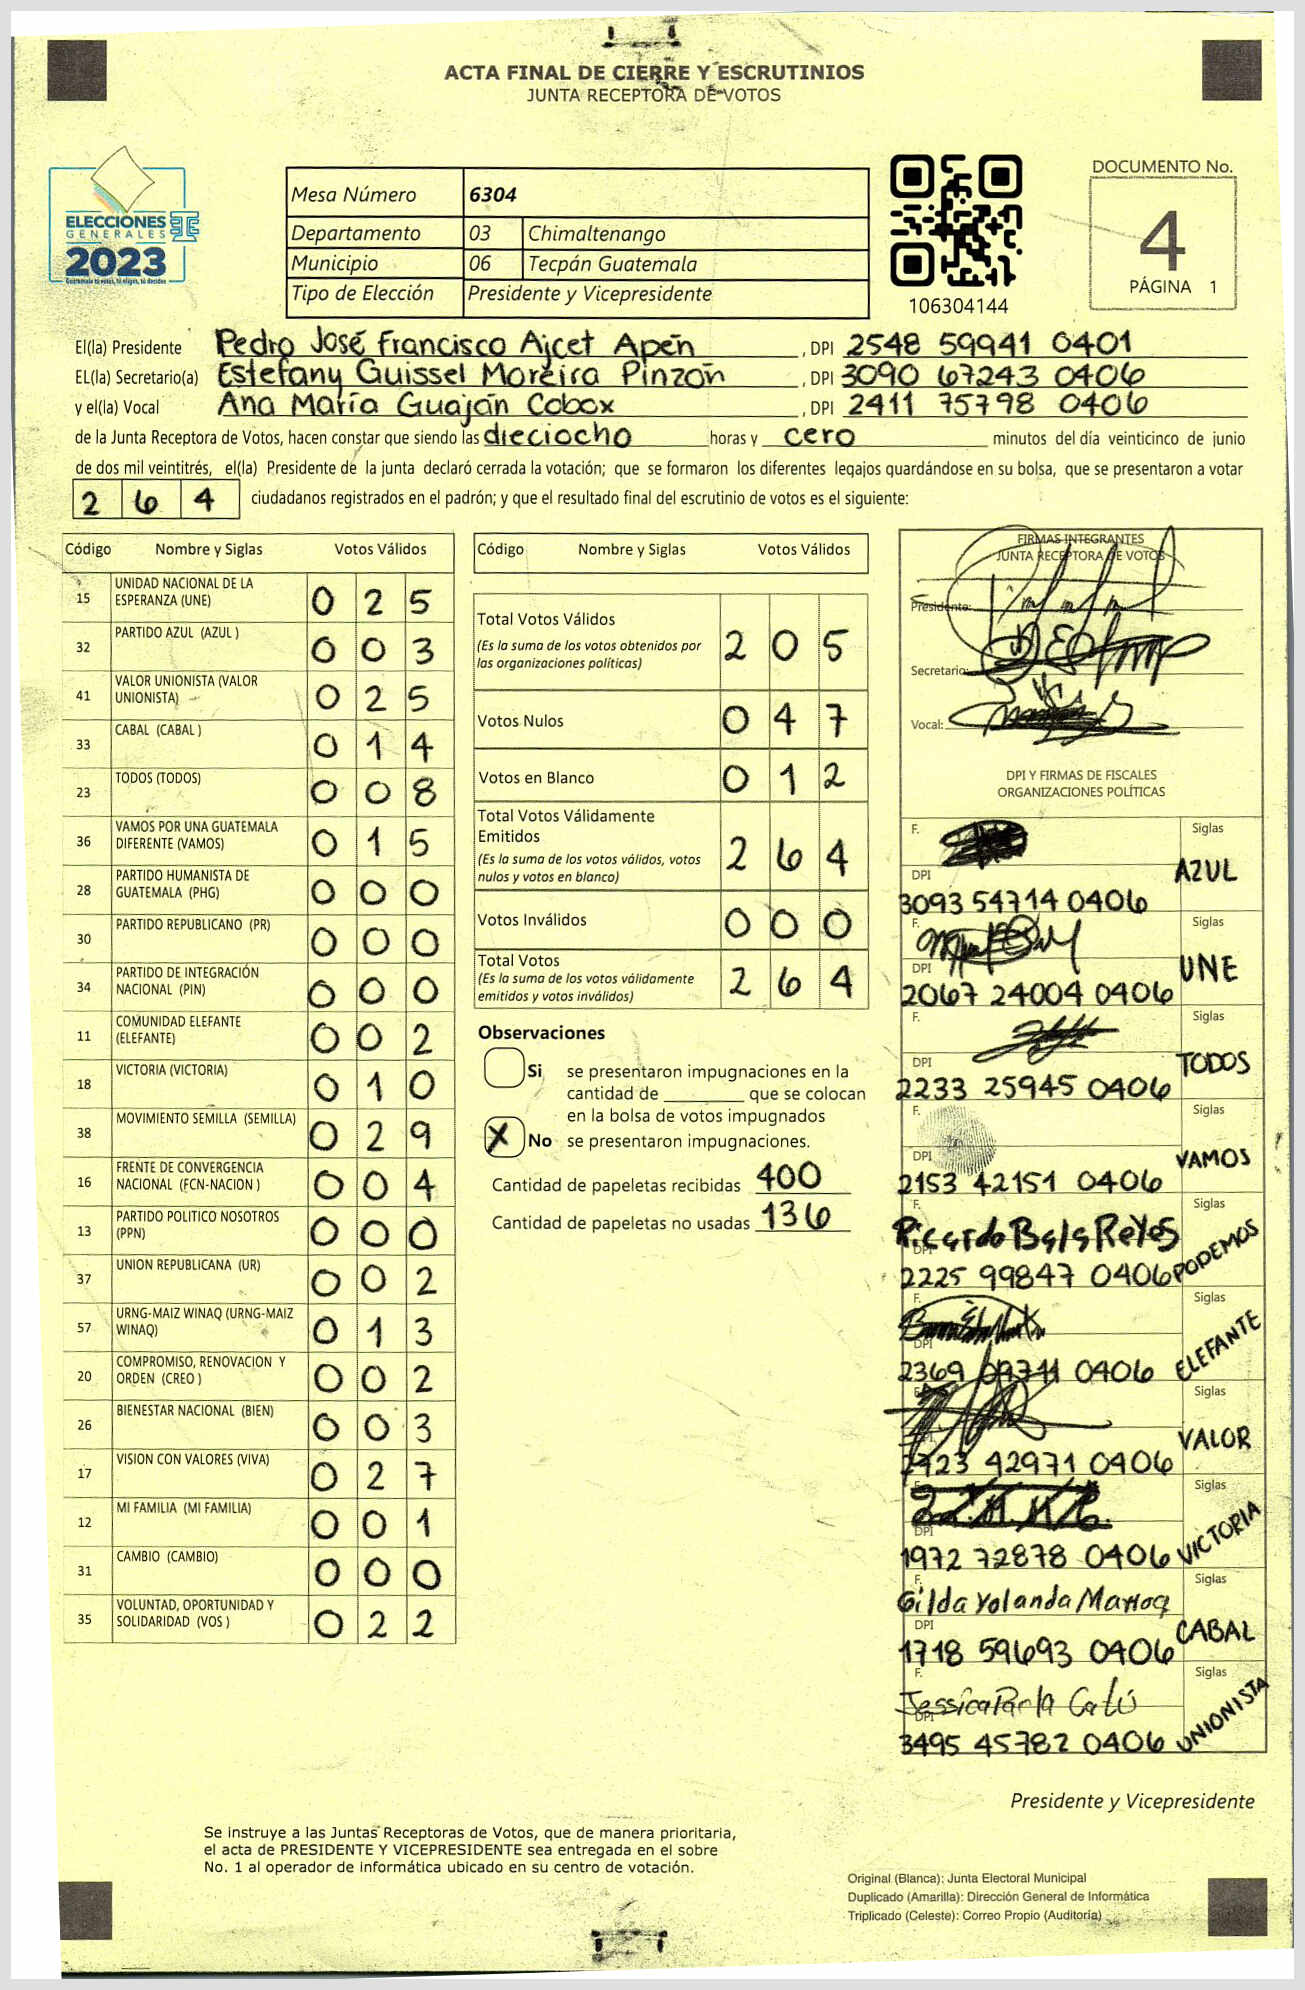 ACTA FINAL DE CIERRE Y ESCRUTINIOS
JUNTA RECEPTORA DE VOTOS
ELECCIONES
GENERALES
2023
Guatemala tú votas, tú eliges, tú decides
Mesa Número 6304
Departamento 03 Chimaltenango
Municipio 06 Tecpán Guatemala
Tipo de Elección Presidente y Vicepresidente
106304144
DOCUMENTO No.
4
PÁGINA 1
El(la) Presidente Pedro José Francisco Ajcet Apén , DPI 2548 59941 0401
EL(la) Secretario(a) Estefany Guissel Moreira Pinzón , DPI 3090 67243 0406
y el(la) Vocal Ana María Guaján Cobox , DPI 2411 75798 0406
de la Junta Receptora de Votos, hacen constar que siendo las dieciocho horas y cero minutos del día veinticinco de junio
de dos mil veintitrés, el(la) Presidente de la junta declaró cerrada la votación; que se formaron los diferentes legajos quardándose en su bolsa, que se presentaron a votar
2 6 4 ciudadanos registrados en el padrón; y que el resultado final del escrutinio de votos es el siguiente:
Código Nombre y Siglas Votos Válidos
15 UNIDAD NACIONAL DE LA ESPERANZA (UNE) 0 2 5
32 PARTIDO AZUL (AZUL ) 0 0 3
41 VALOR UNIONISTA (VALOR UNIONISTA) 0 2 5
33 CABAL (CABAL ) 0 1 4
23 TODOS (TODOS) 0 0 8
36 VAMOS POR UNA GUATEMALA DIFERENTE (VAMOS) 0 1 5
28 PARTIDO HUMANISTA DE GUATEMALA (PHG) 0 0 0
30 PARTIDO REPUBLICANO (PR) 0 0 0
34 PARTIDO DE INTEGRACIÓN NACIONAL (PIN) 0 0 0
11 COMUNIDAD ELEFANTE (ELEFANTE) 0 0 2
18 VICTORIA (VICTORIA) 0 1 0
38 MOVIMIENTO SEMILLA (SEMILLA) 0 2 9
16 FRENTE DE CONVERGENCIA NACIONAL (FCN-NACION ) 0 0 4
13 PARTIDO POLITICO NOSOTROS (PPN) 0 0 0
37 UNION REPUBLICANA (UR) 0 0 2
57 URNG-MAIZ WINAQ (URNG-MAIZ WINAQ) 0 1 3
20 COMPROMISO, RENOVACION Y ORDEN (CREO ) 0 0 2
26 BIENESTAR NACIONAL (BIEN) 0 0 3
17 VISION CON VALORES (VIVA) 0 2 7
12 MI FAMILIA (MI FAMILIA) 0 0 1
31 CAMBIO (CAMBIO) 0 0 0
35 VOLUNTAD, OPORTUNIDAD Y SOLIDARIDAD (VOS ) 0 2 2
Código Nombre y Siglas Votos Válidos
Total Votos Válidos 2 0 5
(Es la suma de los votos obtenidos por
las organizaciones políticas)
Votos Nulos 0 4 7
Votos en Blanco 0 1 2
Total Votos Válidamente
Emitidos 2 6 4
(Es la suma de los votos válidos, votos
nulos y votos en blanco)
Votos Inválidos 0 0 0
Total Votos 2 6 4
(Es la suma de los votos válidamente
emitidos y votos inválidos)
Observaciones
Si se presentaron impugnaciones en la
cantidad de ________ que se colocan
en la bolsa de votos impugnados
X No se presentaron impugnaciones.
Cantidad de papeletas recibidas 400
Cantidad de papeletas no usadas 136
FIRMAS INTEGRANTES
JUNTA RECEPTORA DE VOTOS
Presidente:
Secretario:
Vocal:
DPI Y FIRMAS DE FISCALES
ORGANIZACIONES POLÍTICAS
F. Siglas
DPI AZUL
3093 54714 0406
F. Siglas
DPI UNE
2067 24004 0406
F. Siglas
DPI TODOS
2233 25945 0406
F. Siglas
DPI VAMOS
2153 42151 0406
F. Siglas
Ricardo Bala Reyes
DPI PODEMOS
2225 99847 0406
F. Siglas
DPI ELEFANTE
2369 09711 0406
Siglas
DPI VALOR
42971 0406
F. Siglas
DPI VICTORIA
1972 72878 0406
F. Siglas
Gilda Yolanda Marroq
DPI CABAL
1718 59693 0406
F. Siglas
Jessica Paola Catú
DPI UNIONISTA
3495 45782 0406
Presidente y Vicepresidente
Se instruye a las Juntas Receptoras de Votos, que de manera prioritaria,
el acta de PRESIDENTE Y VICEPRESIDENTE sea entregada en el sobre
No. 1 al operador de informática ubicado en su centro de votación.
Original (Blanca): Junta Electoral Municipal
Duplicado (Amarilla): Dirección General de Informática
Triplicado (Celeste): Correo Propio (Auditoría)